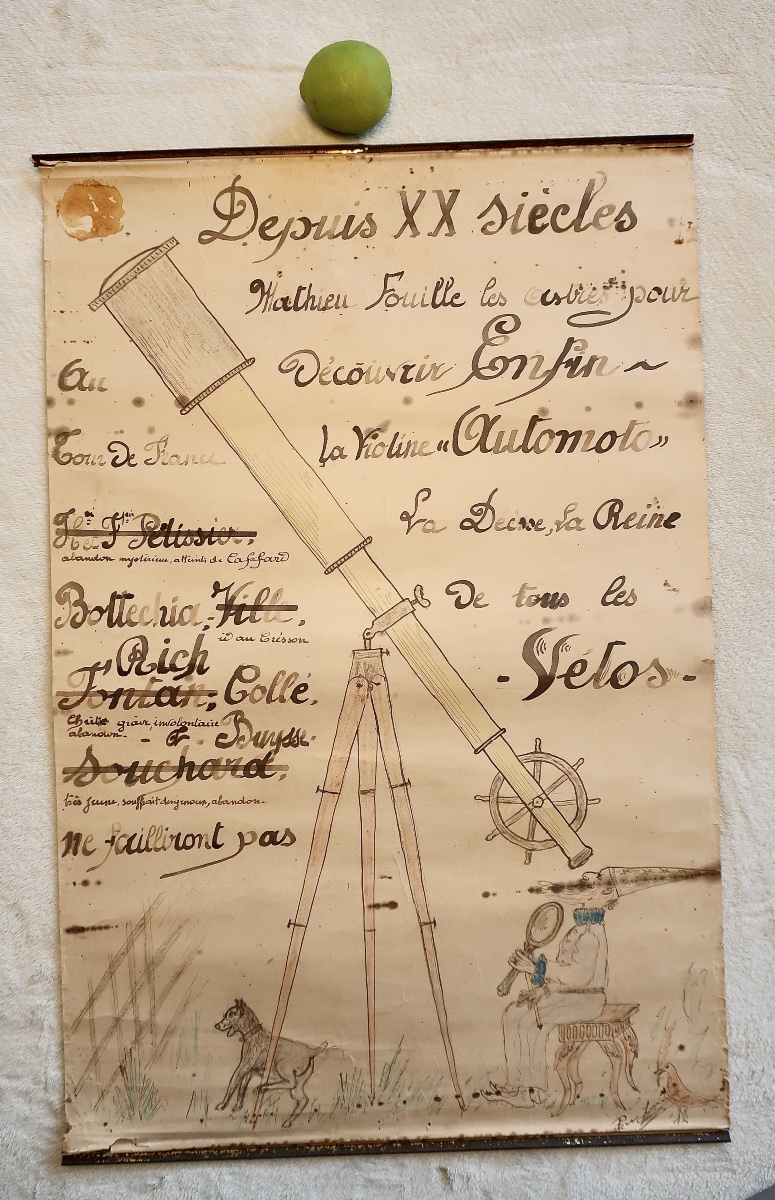 Depuis XX siècles
Mathieu Fouille les astres pour
Découvrir Enfin ~
La Violine "Automoto"
La Déesse, la Reine
De tous les
- Vélos -
Au
Tour De France
H.ri et F.cis Pélissier.
abandon mystérieux, atteints de Cafard
Bottechia, Ville,
id au Crésson
Rich
Fontan, Collé,
Chûte grave, involontaire
abandon. - F. Buysse.
Souchard.
très jeune, souffrait des genoux, abandon.
ne failliront pas